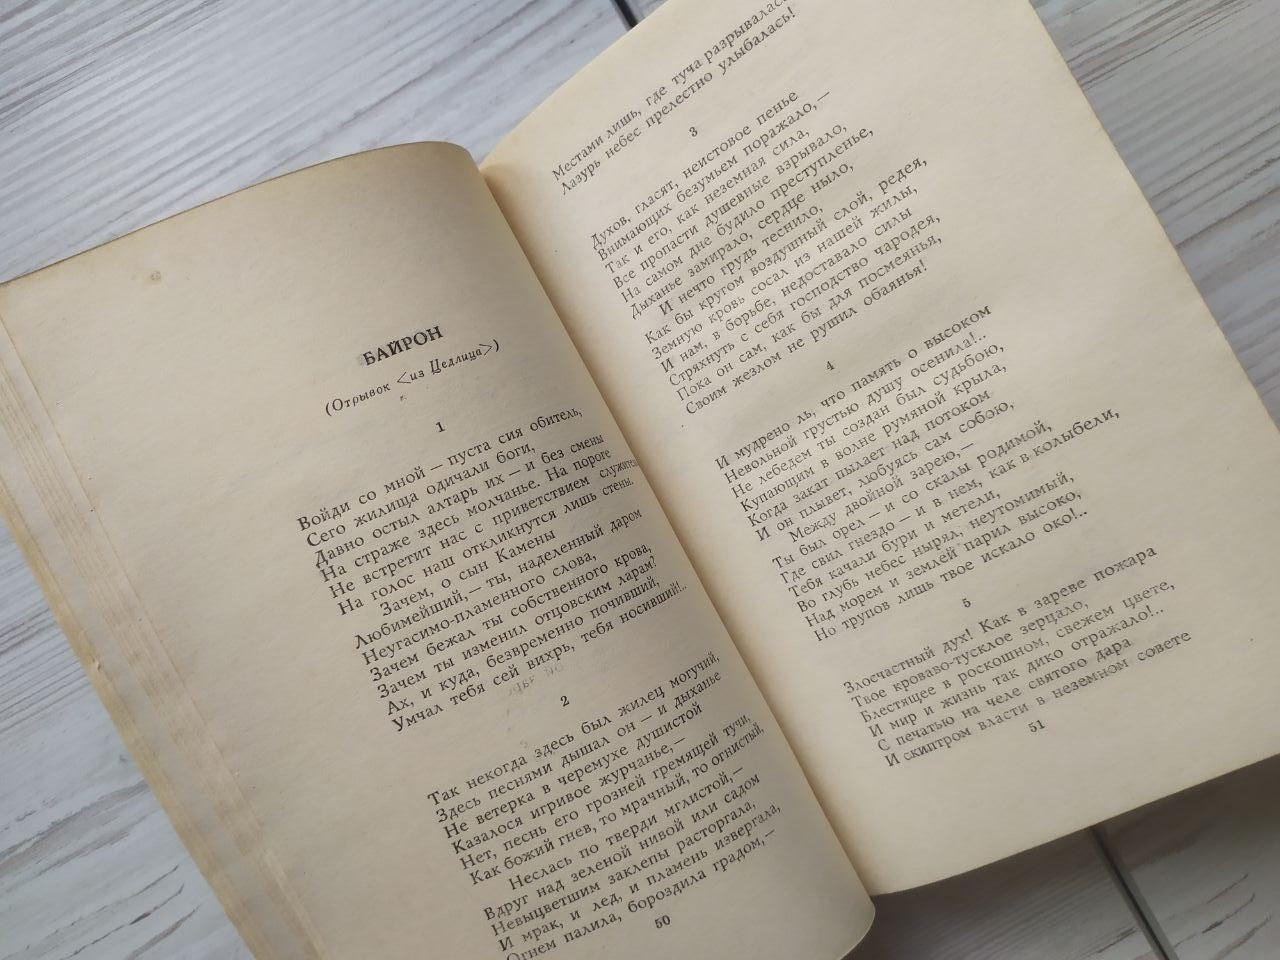 БАЙРОН
(Отрывок <из Цедлица>)
1
Войди со мной — пуста сия обитель,
Сего жилища одичали боги,
Давно остыл алтарь их — и без смены
На страже здесь молчанье. На пороге
Не встретит нас с приветствием служитель,
На голос наш откликнутся лишь стены.
Зачем, о сын Камены
Любимейший, — ты, наделенный даром
Неугасимо-пламенного слова,
Зачем бежал ты собственного крова,
Зачем ты изменил отцовским ларам?
Ах, и куда, безвременно почивший,
Умчал тебя сей вихрь, тебя носивший!..
2
Так некогда здесь был жилец могучий,
Здесь песнями дышал он — и дыханье
Не ветерка в черемухе душистой
Казалося игривое журчанье, —
Нет, песнь его грозней гремящей тучи,
Как божий гнев, то мрачный, то огнистый,
Неслась по тверди мглистой, —
Вдруг над зеленой нивой или садом
Невыцветшим заклепы расторгала,
И мрак, и лед, и пламень извергала,
Огнем палила, бороздила градом, —
50
Местами лишь, где туча разрывалась,
Лазурь небес прелестно улыбалась!
3
Духов, гласят, неистовое пенье
Внимающих безумьем поражало, —
Так и его, как неземная сила,
Все пропасти душевные взрывало,
На самом дне будило преступленье,
Дыханье замирало, сердце ныло,
И нечто грудь теснило,
Как бы кругом воздушный слой, редея,
Земную кровь сосал из нашей жилы,
И нам, в борьбе, недоставало силы
Стряхнуть с себя господство чародея,
Пока он сам, как бы для посмеянья,
Своим жезлом не рушил обаянья!
4
И мудрено ль, что память о высоком
Невольной грустью душу осенила!..
Не лебедем ты создан был судьбою,
Купающим в волне румяной крыла,
Когда закат пылает над потоком
И он плывет, любуясь сам собою,
Между двойной зарею, —
Ты был орел — и со скалы родимой,
Где свил гнездо — и в нем, как в колыбели,
Тебя качали бури и метели,
Во глубь небес нырял, неутомимый,
Над морем и землей парил высоко,
Но трупов лишь твое искало око!..
5
Злосчастный дух! Как в зареве пожара
Твое кроваво-тусклое зерцало,
Блестящее в роскошном, свежем цвете,
И мир и жизнь так дико отражало!..
С печатью на челе святого дара
И скиптром власти в неземном совете
51